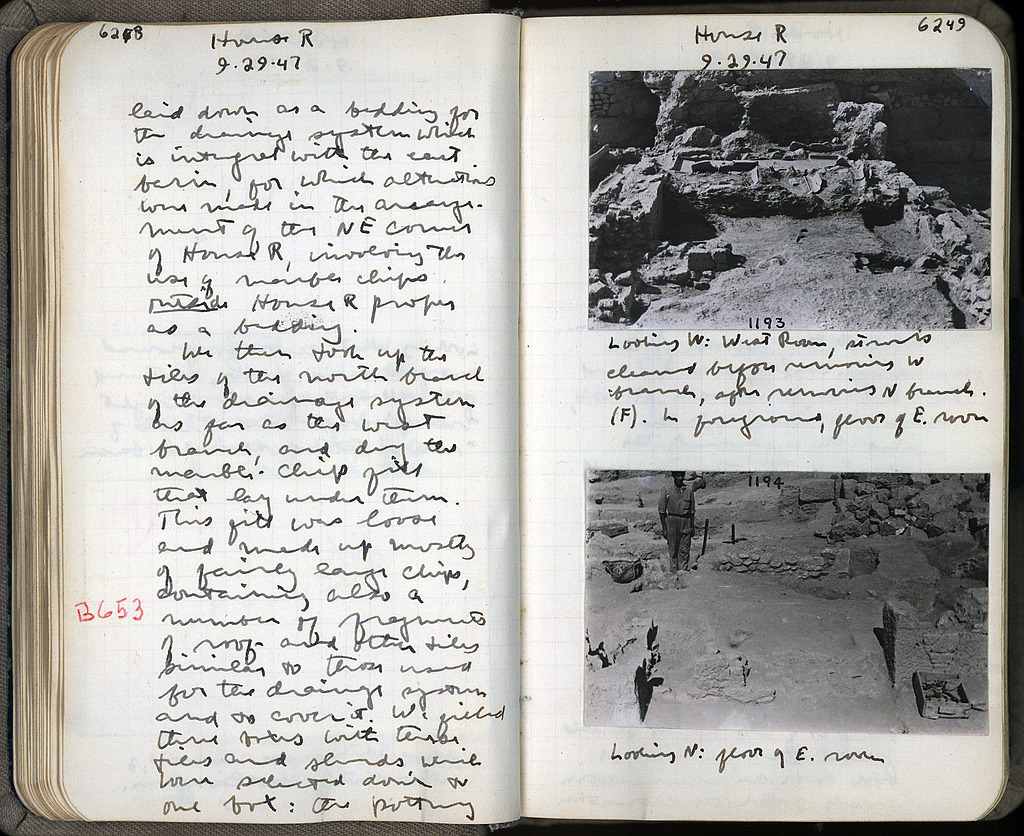 6248
House R
9.29.47
laid down as a bedding for
the drainage system which
is integral with the east
basin, for which alterations
were made in the arrange-
ment of the NE corner
of House R, involving the
use of marble chips
outside House R proper
as a bedding.
We then took up the
tiles of the north branch
of the drainage system
as far as the west
branch, and dug the
marble chip fill
that lay under them.
This fill was loose
and made up mostly
of fairly large chips,
containing also a
B653
number of fragments
of roof and other tiles
similar to those used
for the drainage system
and to cover it. We filled
three boxes with these
tiles and sherds which
were selected down to
one box: the pottery
6249
House R
9.29.47
1193
Looking W: West Room, strosis
cleaned before removing W
branch, after removing N branch.
(F). In foreground, floor of E. room
1194
Looking N: floor of E. room